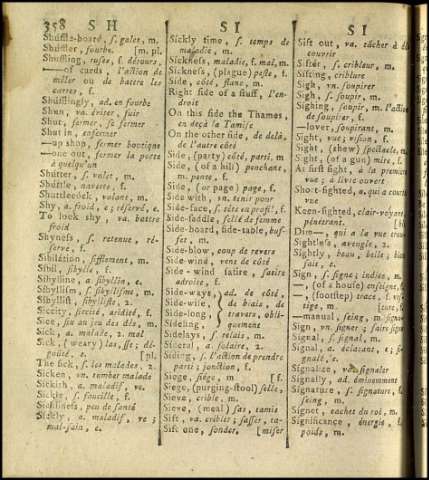 358 S H
S I
S I
Shuffle-board, s. galet, m.
Shuffler, fourbe. [m. pl.
Shuffling, ruses, f. détours,
— of cards, l'action de
mêler ou de battre les
cartes, f.
Shufflingly, ad. en fourbe
Shun, va. éviter, fuir
Shut, fermer, se fermer
Shut in, enfermer
—up shop, fermer boutique
—one out, fermer la porte
à quelqu'un
Shutter, s. volet, m.
Shuttle, navette, f.
Shuttlecock, volant, m.
Shy, a. froid, e; réservé, e.
To look shy, va. battre
froid
Shyness, s. retenue, ré-
serve, f.
Sibilation, sifflement, m.
Sibil, sibylle, f.
Sibylline, a. sibyllin, e.
Sibyllism, s. sibyllisme, m.
Sibyllist, sibylliste, 2.
Siccity, siccité, aridité, f.
Sice, six au jeu des dés, m.
Sick, a. malade, 2. mal
Sick, (weary) las, sse; dé-
goûté, e. [pl.
The sick, s. les malades, 2.
Sicken, vn. tomber malade
Sickish, a. maladif, ve.
Sickle, s. faucille, f.
Sickliness, peu de santé
Sickly, a. maladif, ve;
mal-sain, e.
Sickly time, s. temps de
maladie, m.
Sickness, maladie, f. mal, m.
Sickness, (plague) peste, f.
Side, côté, flanc, m.
Right side of a stuff, l'en-
droit
On this side the Thames,
en deçà la Tamise
On the other side, de delà,
de l'autre côté
Side, (party) côté, parti, m
Side, (of a hill) penchant,
m. pente, f.
Side, (or page) page, f.
Side with, vn. tenir pour
Side-face, s. tête en profil, f.
Side-saddle, selle de femme
Side-board, side-table, buf-
fet, m.
Side-blow, coup de revers
Side-wind, vent de côté
Side-wind satire, satire
adroite, f.
Side-ways, ad. de côté,
Side-wise, de biais, de
Side-long, travers, obli-
Sideling, quement
Sidelays, s. relais, m.
Sideral, a. solaire, 2.
Siding, s. l'action de prendre
parti; jonction, f.
Siege, siége, m [f.
Siege, (purging-stool) selle,
Sieve, crible, m.
Sieve, (meal) sas, tamis
Sift, va. cribler; sasser, ta-
Sift one, sonder, [miser
Sift out, va. tâcher à dé-
couvrir
Sifter, s. cribleur, m.
Sifting, criblure
Sigh, vn. soupirer
Sigh, s. soupir, m.
Sighing, soupir, m. l'action
de soupirer, f.
—lover, soupirant, m.
Sight, vue; vision, f.
Sight, (shew) spectacle, m.
Sight, (of a gun) mire, f.
At first sight, à la première
vue; à livre ouvert
Short-sighted, a. qui a courte
vue
Keen-sighted, clair-voyant,
pénétrant. [bl
Dim—, qui a la vue trou-
Sightless, aveugle, 2.
Sightly, beau, belle; bien
fait, e.
Sign, s. signe; indice, m.
—, (of a house) enseigne, f.
—, (footstep) trace, f. ves-
tige, m.
—manual, seing, m.
Sign, vn. signer; faire signe
Signal, s. signal, m.
Signal, a. éclatant, e; si-
gnalé, e.
Signalize, va. signaler
Signally, ad. éminemment
Signature, s. signature, f.
seing, m.
Signet, cachet du roi, m.
Significance, énergie, f.
poids, m.